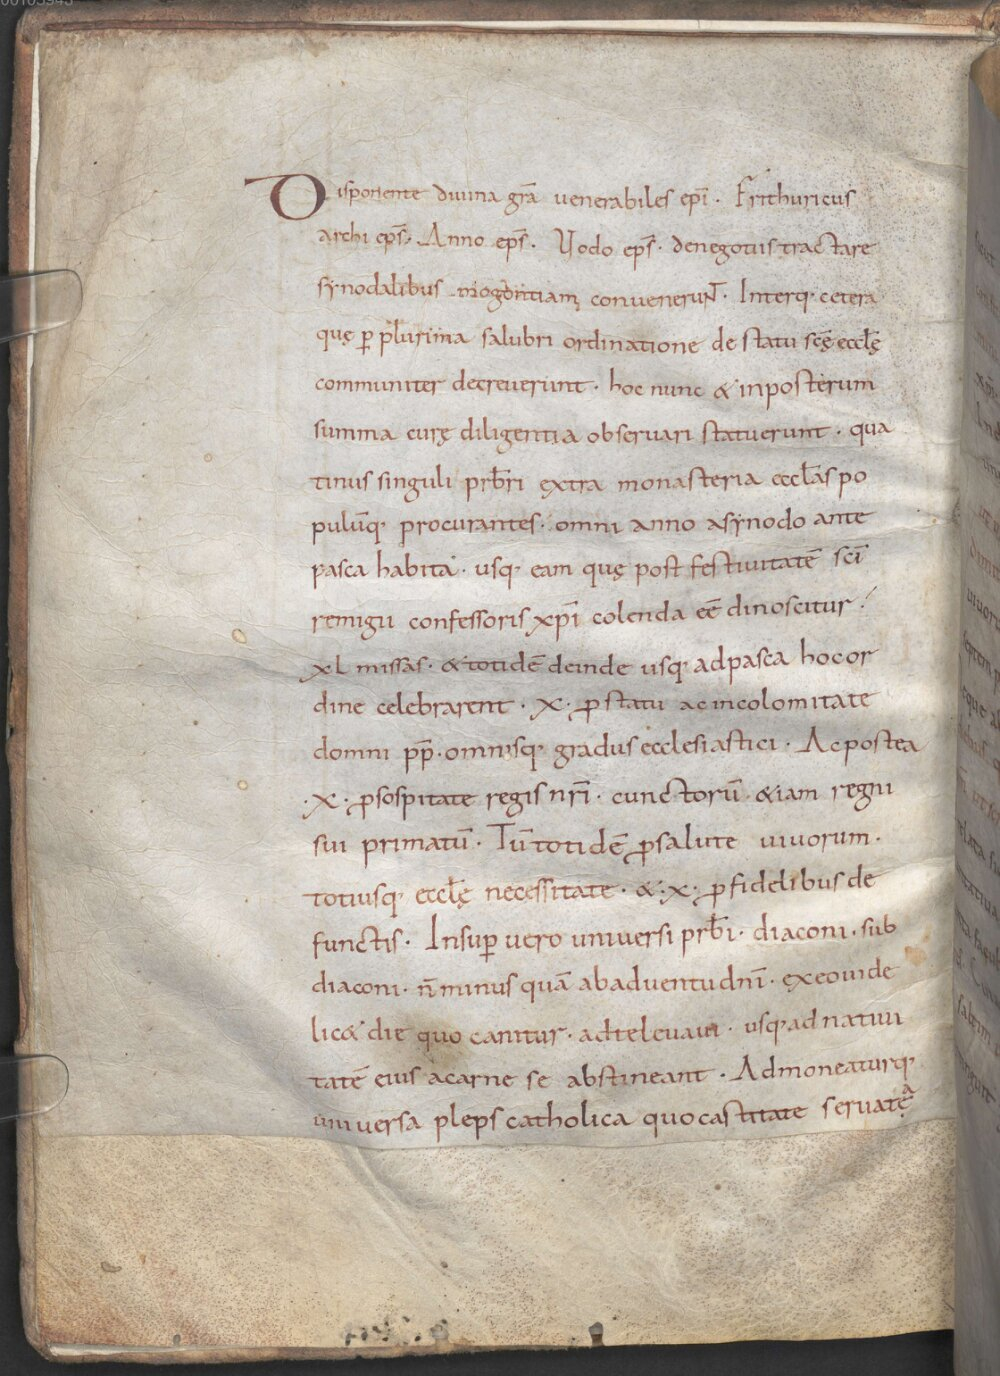 Disponente diuina grã uenerabiles epĩ · Frithuricus
archi ep̃s · Anno ep̃s · Uodo ep̃s · denegotiis tractare
synodalibus mogontiam conuenerunt · Interq· cetera
quę ꝑ plurima salubri ordinatione de statu scę̃ ecclę̃
communiter decreuerunt · hoc nunc & inposterum
summa curę diligentia obseruari statuerunt · qua
tinus singuli prb̃ri extra monasteria eccl̃as po
pulũq· procurantes · omni anno asynodo ante
pasca habita · usq· eam quę post festiuitatẽ scĩ
remigii confessoris xp̃i colenda eẽ dinoscitur ·
xl missas · & totidẽ deinde usq· adpasca hocor
dine celebrarent · x · ꝓstatu acincolomitate
domni pp̃ · omnisq· gradus ecclesiastici · Acpostea
· x · ꝓsospitate regis nr̃i · cunctorũ · &iam regni
sui primatũ · Tũ totidẽ ꝓsalute uiuorum ·
totiusq· eccl̃ę necessitate · & · x · ꝓfidelibus de
functis · Insuꝑ uero uniuersi prb̃i · diaconi · sub
diaconi · ñ minus quã abaduentu dnĩ · exeouide
lic& die quo canitur · adteleuaui · usq· ad natiui
tatẽ eius acarne se abstineant · Admoneaturq·
uniuersa pleps catholica quocastitate seruatę
a